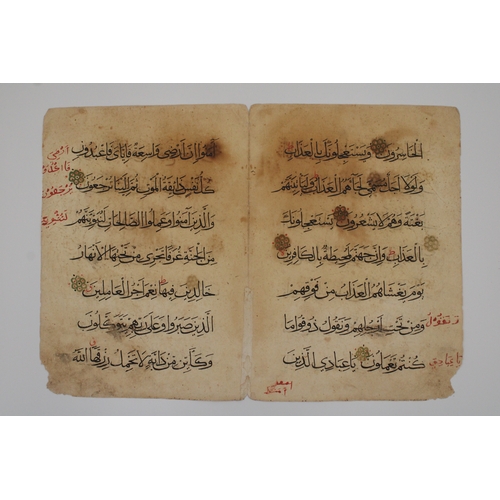 الخاسرون ويستعجلونك بالعذاب
ولولا اجل مسمى لجاءهم العذاب ولياتينهم
بغتة وهم لا يشعرون يستعجلونك
بالعذاب وان جهنم لمحيطة بالكافرين
يوم يغشاهم العذاب من فوقهم
ومن تحت ارجلهم ويقول ذوقوا ما
ونقول
كنتم تعملون يا عبادي الذين
يا عبادي
آمنوا ان ارضي واسعة فاياي فاعبدون
ارضي
كل نفس ذائقة الموت ثم الينا ترجعون
يرجعون
والذين آمنوا وعملوا الصالحات لنبوئنهم
من الجنة غرفا تجري من تحتها الانهار
خالدين فيها نعم اجر العاملين
الذين صبروا وعلى ربهم يتوكلون
وكاين من دابة لا تحمل رزقها الله